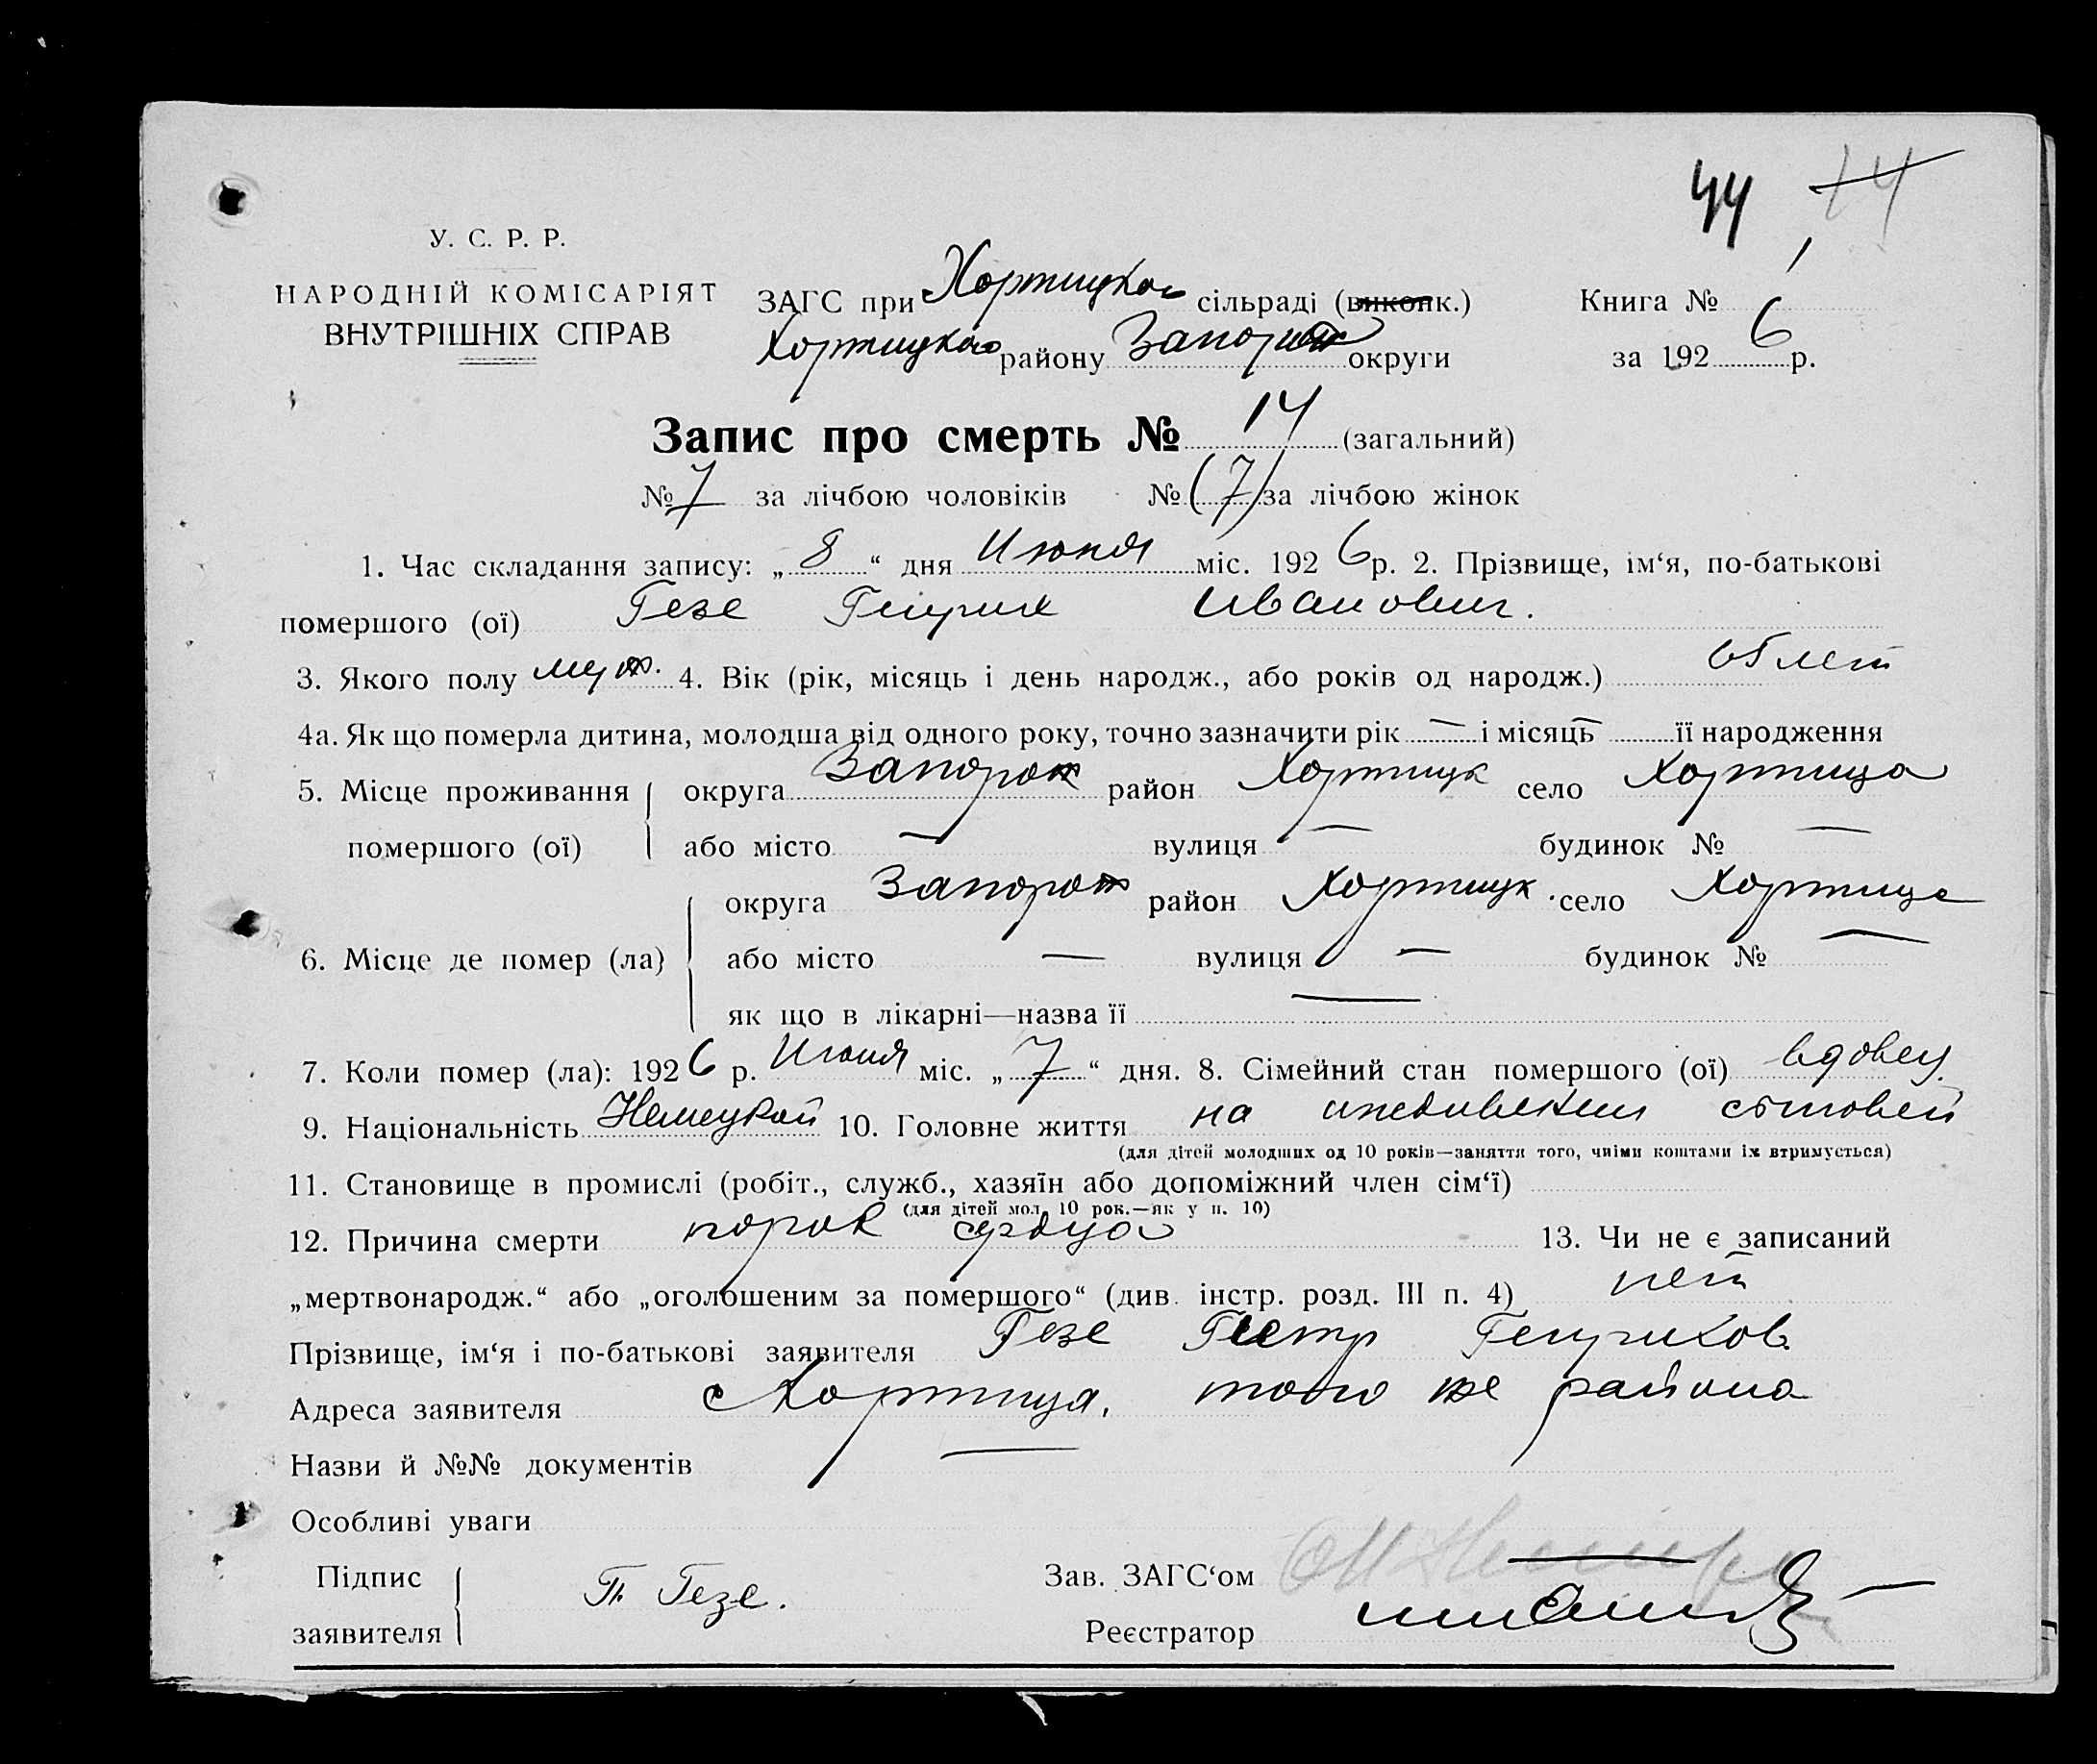 44 14
У. С. Р. Р.
НАРОДНІЙ КОМІСАРІЯТ
ВНУТРІШНІХ СПРАВ
ЗАГС при Хортицкого сільраді (виконк.) Книга № 1
Хортицкого району Запорож округи за 1926 р.
Запис про смерть № 14 (загальний)
№ 7 за лічбою чоловіків № (7) за лічбою жінок
1. Час складання запису: „8“ дня Июня міс. 1926 р. 2. Прізвище, ім‘я, по-батькові
помершого (ої) Гезе Генрих Иванович.
3. Якого полу муж. 4. Вік (рік, місяць і день народж., або років од народж.) 65 лет
4а. Як що померла дитина, молодша від одного року, точно зазначити рік — і місяць — її народження
5. Місце проживання помершого (ої) округа Запорож район Хортицк село Хортица
або місто — вулиця — будинок № —
6. Місце де помер (ла) округа Запорож район Хортицк село Хортице
або місто — вулиця — будинок № —
як що в лікарні—назва її —
7. Коли помер (ла): 1926 р. Июня міс. „7“ дня. 8. Сімейний стан помершого (ої) вдовец.
9. Національність Немецкой 10. Головне життя на иждивении сыновей
(для дітей молодших од 10 років—заняття того, чиїми коштами їх втримується)
11. Становище в промислі (робіт., служб., хазяїн або допоміжний член сім‘ї)
(для дітей мол. 10 рок.—як у п. 10)
12. Причина смерти порок сердца 13. Чи не є записаний
„мертвонародж.“ або „оголошеним за помершого“ (див. інстр. розд. III п. 4) нет
Прізвище, ім‘я і по-батькові заявителя Гезе Петр Генрихов.
Адреса заявителя с Хортица, того же района
Назви й №№ документів —
Особливі уваги
Підпис заявителя П. Гезе.
Зав. ЗАГС‘ом
Реєстратор